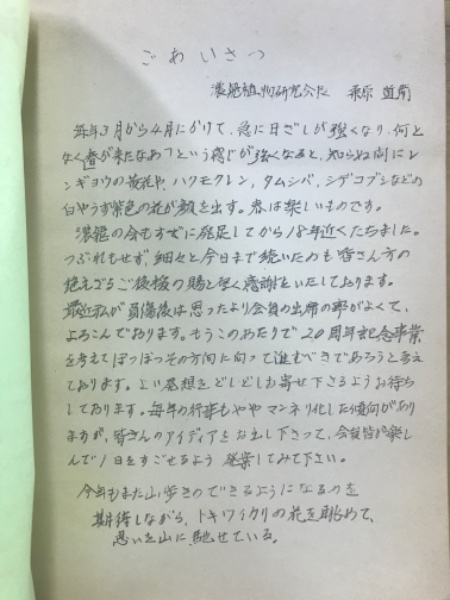 ごあいさつ
濃飛植物研究会長 桑原 道
毎年3月から4月にかけて、急に日ざしが強くなり、何と
なく「春が来たなあ」という感じが強くなると、知らぬ間にレ
ンギョウの黄花や、ハクモクレン、タムシバ、シデコブシなどの
白やうす紫色の花が顔を出す。春は楽しいものです。
濃飛の会もすでに発足してから18年近くたちました。
つぶれもせず、細々と今日まで続いたのも皆さん方の
絶えざるご後援の賜と堅く感謝をいたしております。
最近私が負傷後は思ったより会員の出席の率がよくて、
よろこんでおります。もうこのあたりで20周年記念事業
を考えてぼつぼつその方向に向って進むべきであろうと考え
ております。よい発想をどしどしお寄せ下さるようお待ち
しております。毎年の行事もややマンネリ化した傾向があり
ますが、皆さんのアイディアをお出し下さって、会員皆が楽し
んで1日をすごせるよう 発案してみて下さい。
今年もまた山歩きのできるようになるのを
期待しながら、トキワイカリの花を眺めて、
思いを山に馳せている。